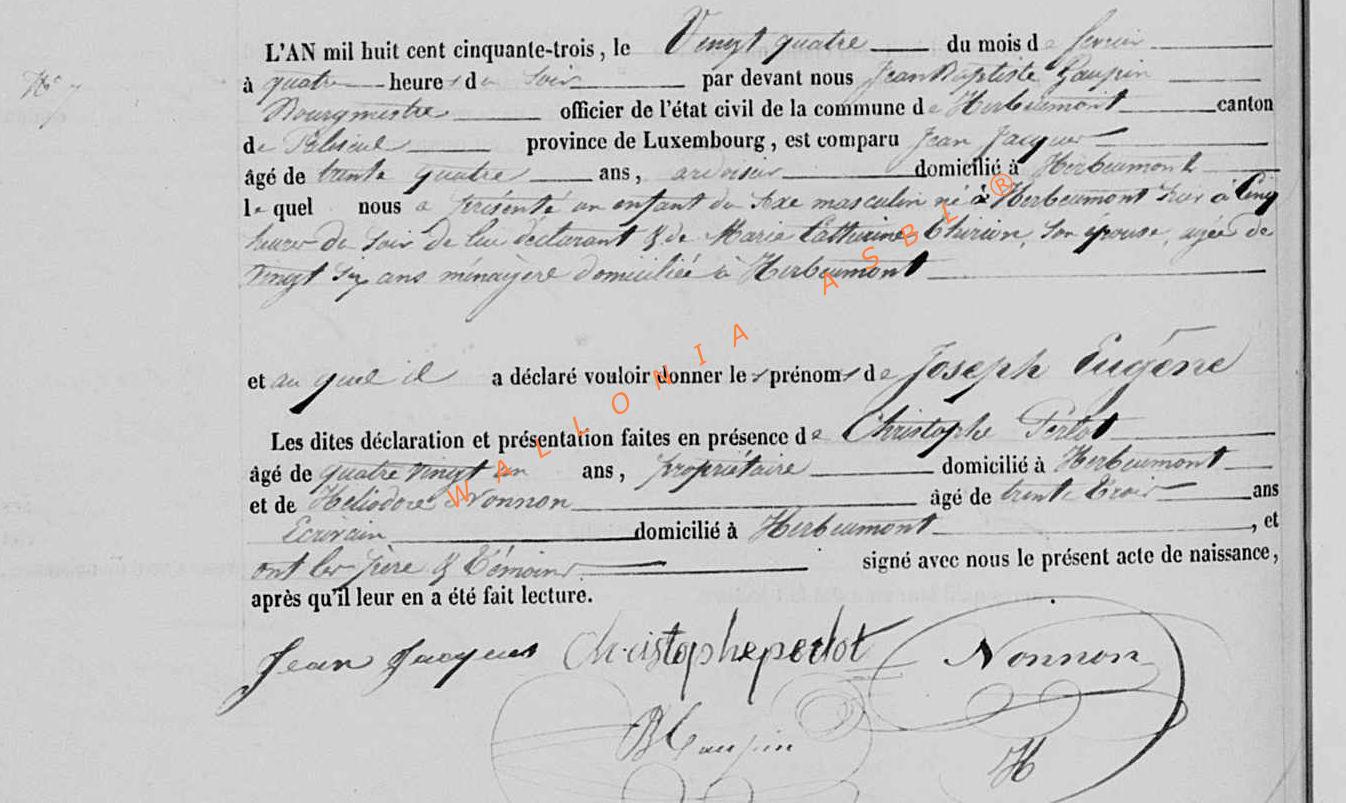 L'AN mil huit cent cinquante-trois, le Vingt quatre du mois de fevrier
N° 7
à quatre heures du Soir par devant nous Jean Baptiste Gaupin
Bourgmestre officier de l'état civil de la commune de Herbeumont canton
de Paliseul province de Luxembourg, est comparu Jean Jacques
âgé de trente quatre ans, ardoisier domicilié à Herbeumont
le quel nous a présenté un enfant du sexe masculin né à Herbeumont hier à Cinq
heures du Soir de lui déclarant & de Marie Catherine Thirion, son épouse, agée de
vingt six ans ménagère domiciliée à Herbeumont
et au quel il a déclaré vouloir donner les prénoms de Joseph Eugêne
Les dites déclaration et présentation faites en présence de Christophe Perlot
âgé de quatre vingt un ans, propriétaire domicilié à Herbeumont
et de Héliodore Nonnon âgé de trente trois ans
Ecrivain domicilié à Herbeumont, et
ont les père & Témoins signé avec nous le présent acte de naissance,
après qu'il leur en a été fait lecture.
Jean Jacques Christophe perlot Nonnon
B Gaupin H
WALLONIA ASBL ®